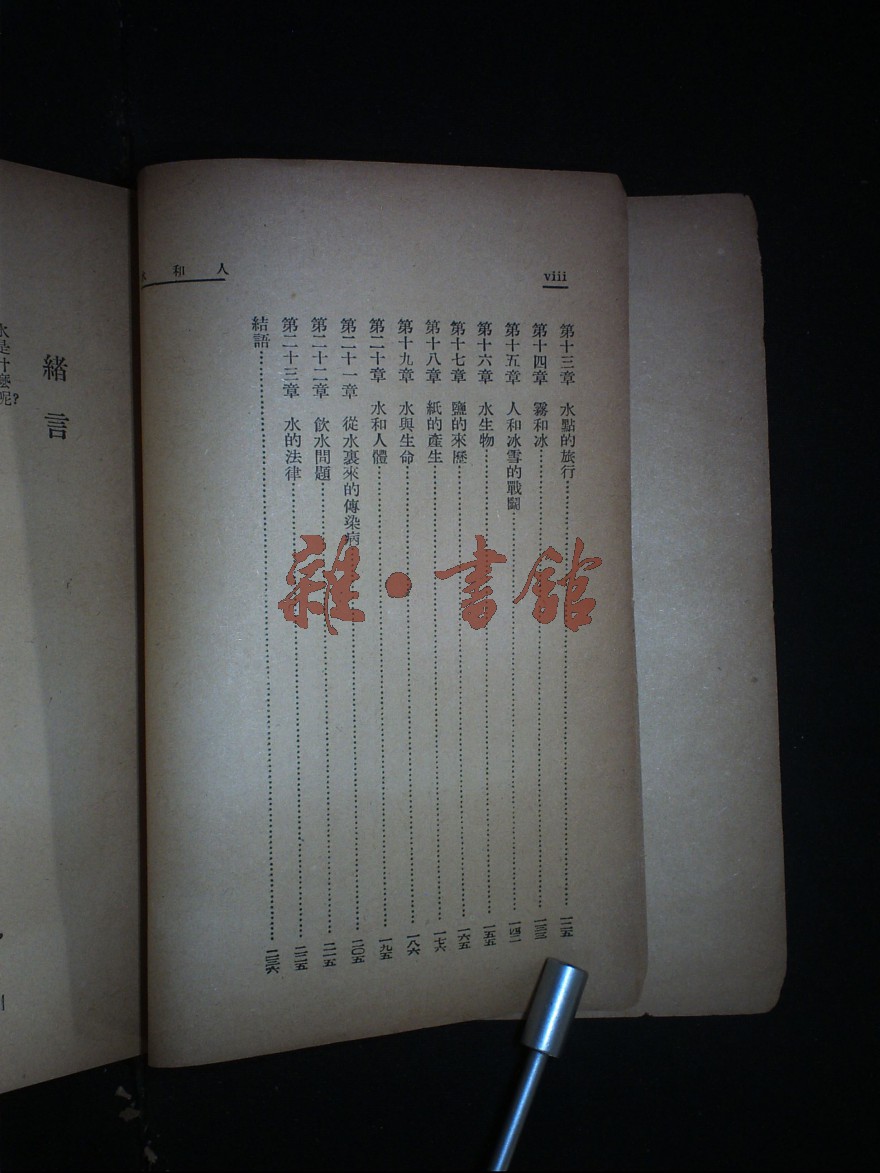 viii
人和水
第十三章 水點的旅行……一二五
第十四章 霧和冰……一三三
第十五章 人和冰雪的戰鬭……一四二
第十六章 水生物……一五五
第十七章 鹽的來歷……一六五
第十八章 紙的產生……一七六
第十九章 水與生命……一八六
第二十章 水和人體……一九五
第二十一章 從水裏來的傳染病……二〇五
第二十二章 飲水問題……二一五
第二十三章 水的法律……二二五
結語……二三六
雜·書館
緒言
水是什麼呢?